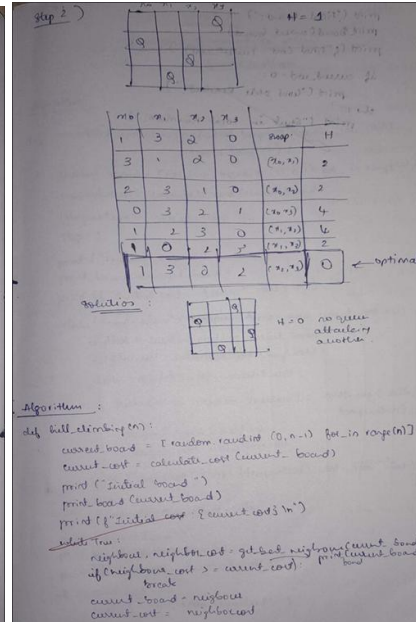 Step 2)
x0 x1 x2 x3
H = 1
Q
Q
Q
Q
x0 x1 x2 x3 swap H
1 3 2 0
3 1 2 0 (x0, x1) 2
2 3 1 0 (x0, x2) 2
0 3 2 1 (x0, x3) 4
1 2 3 0 (x1, x2) 4
1 0 2 3 (x1, x3) 2
1 3 0 2 (x2, x3) 0 ← optimal
Solution :
Q
Q
Q
Q
H = 0 no queen
attacking
another.
Algorithm :
def hill_climbing(n):
current_board = [random.randint (0, n-1) for _ in range(n)]
current_cost = calculate_cost (current_board)
print ("Initial board")
print_board (current_board)
print (f"Initial cost : {current_cost} \n")
while True :
neighbour, neighbor_cost = get_best_neighbour(current_board
if (neighbour_cost >= current_cost): print(current_board
break
current_board = neighbour
current_cost = neighbor cost